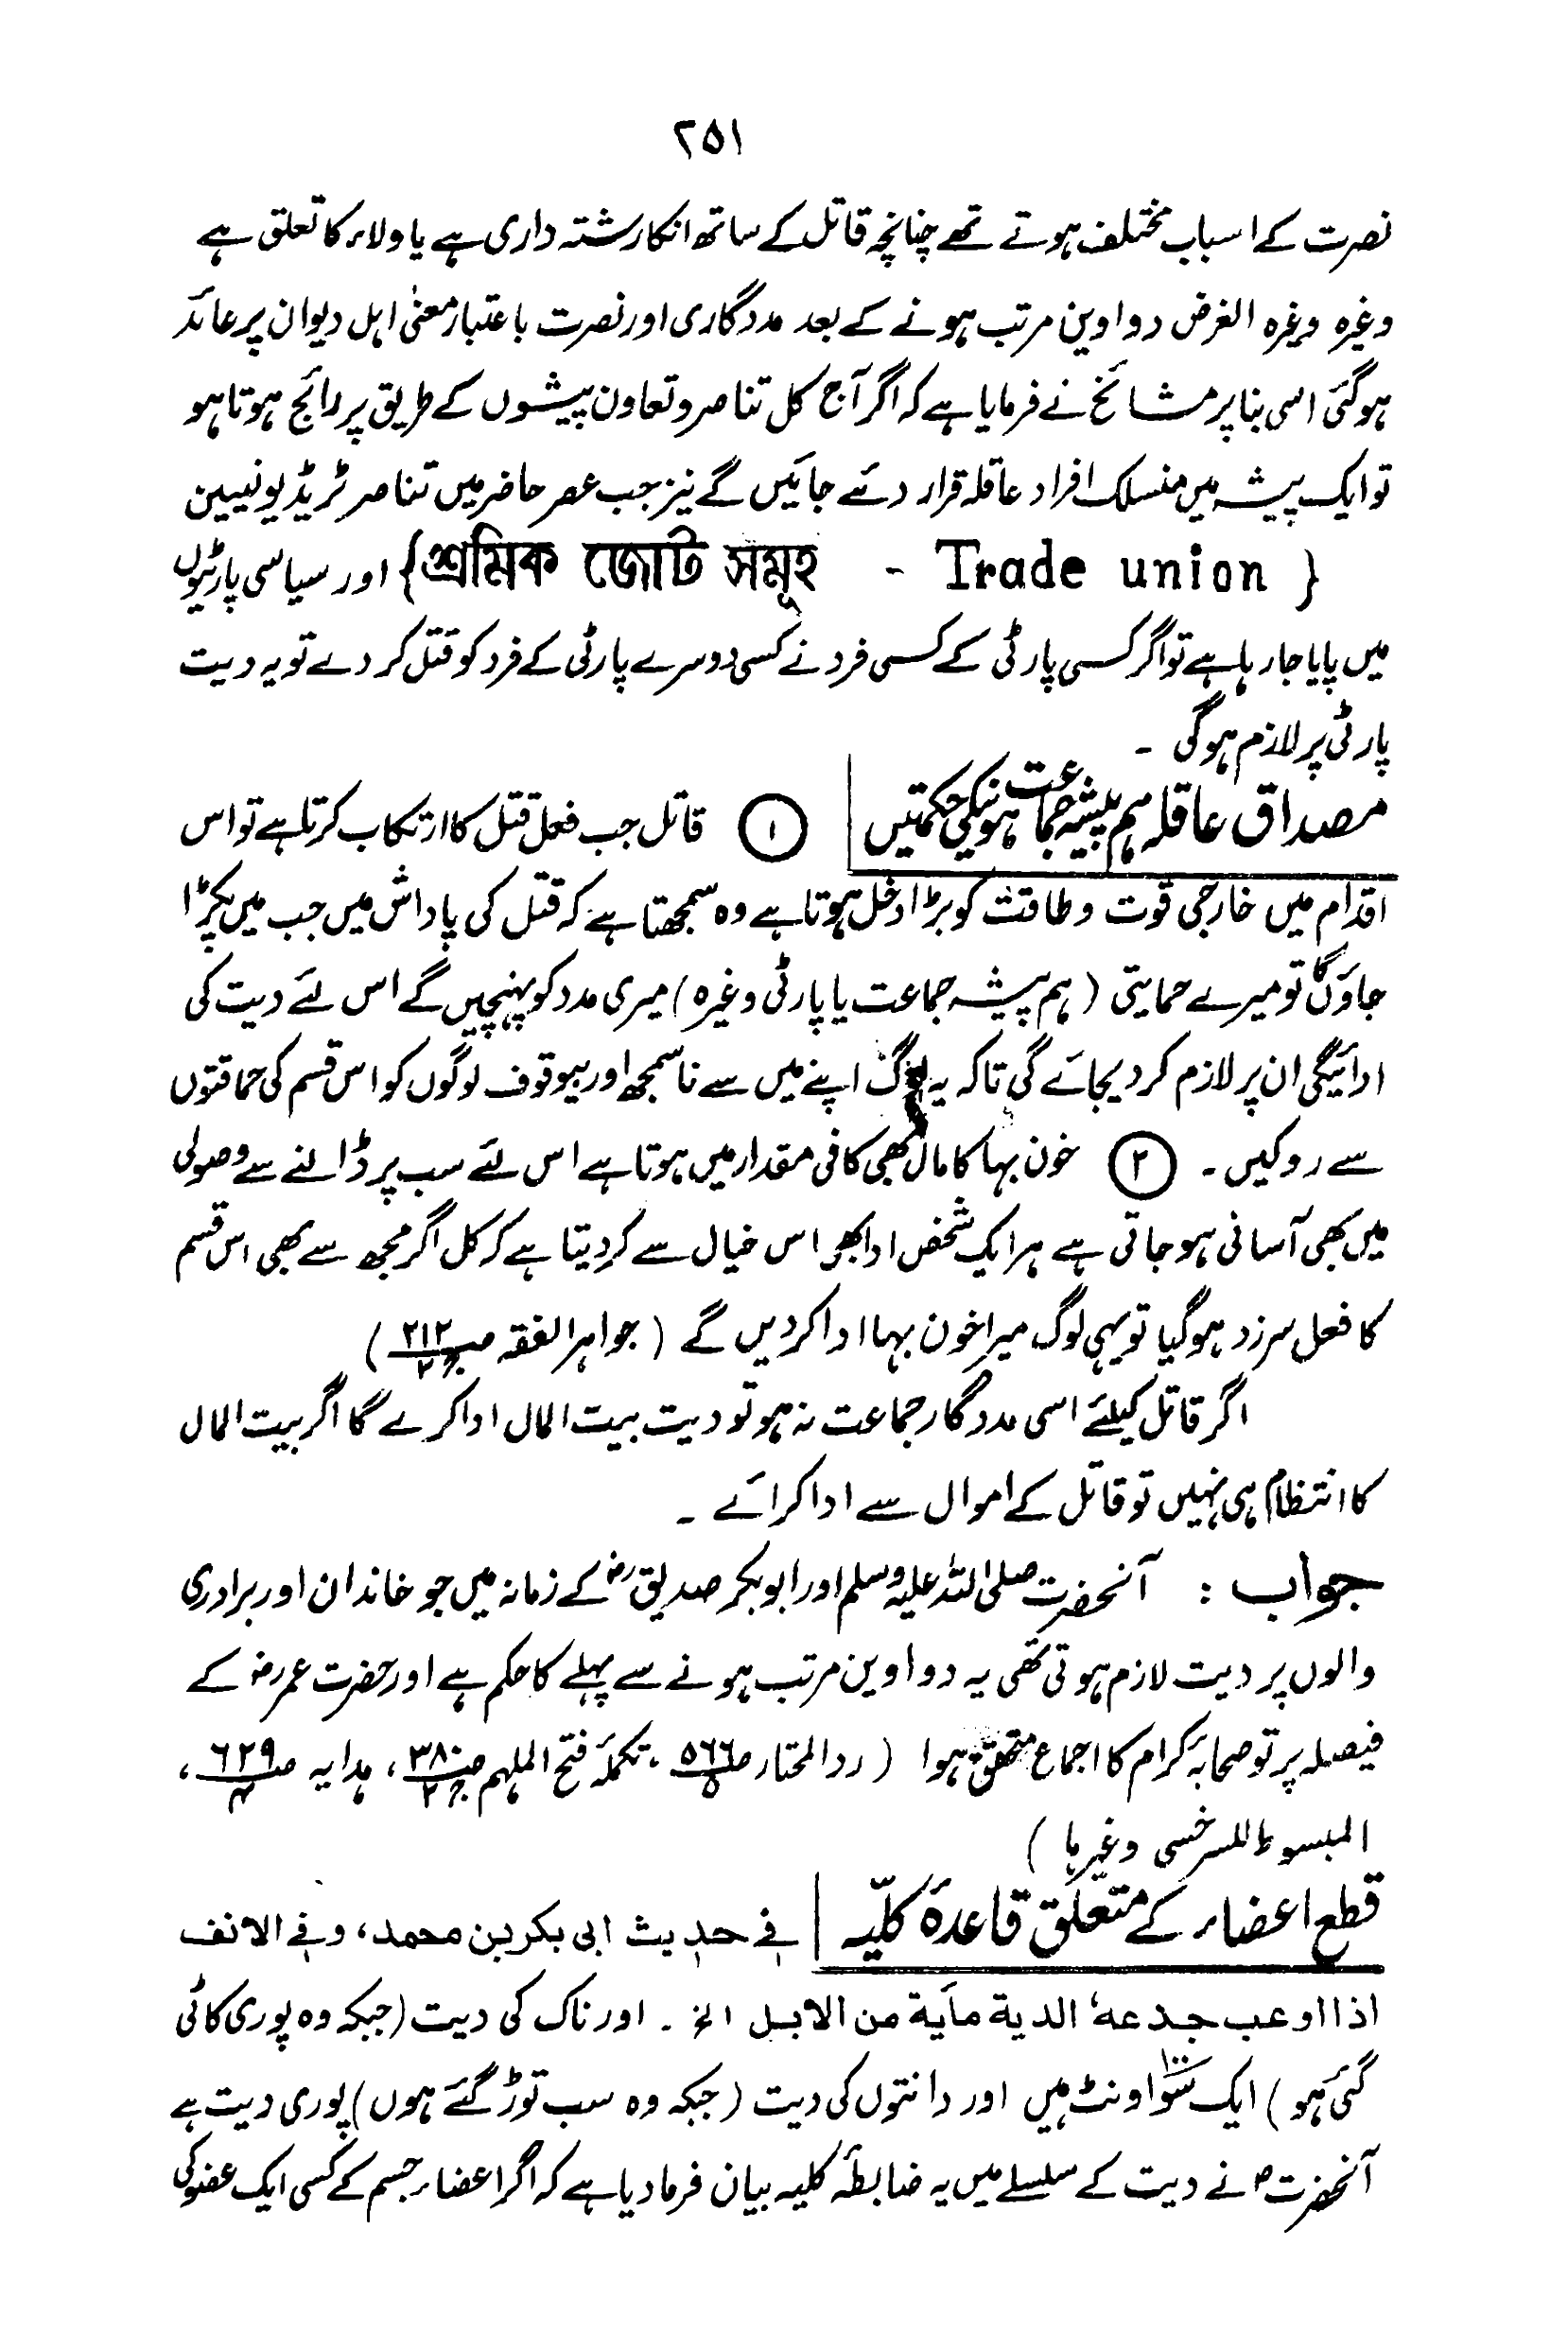 ۲۵۱
نصرت کے اسباب مختلف ہوتے تھے چنانچہ قاتل کے ساتھ انکا رشتہ داری ہے یا ولاء کا تعلق ہے
وغیرہ وغیرہ الغرض دواوین مرتب ہونے کے بعد مددگاری اور نصرت باعتبار معنیٰ اہل دیوان پر عائد
ہوگئی اسی بنا پر مشائخ نے فرمایا ہے کہ اگر آج کل تناصر و تعاون پیشوں کے طریق پر رائج ہوتا ہو
تو ایک پیشہ میں منسلک افراد عاقلہ قرار دئے جائیں گے نیز جب عصر حاضر میں تناصر ٹریڈ یونیین
{ Trade union - শ্রমিক জোট সমূহ} اور سیاسی پارٹیوں
میں پایا جا رہا ہے تو اگر کسی پارٹی کے کسی فرد نے کسی دوسرے پارٹی کے فرد کو قتل کر دے تو یہ دیت
پارٹی پر لازم ہوگی ۔
مصداق عاقلہ ہم پیشہ جماعت ہونیکی حکمتیں | ① قاتل جب فعل قتل کا ارتکاب کرتا ہے تو اس
اقدام میں خارجی قوت و طاقت کو بڑا دخل ہوتا ہے وہ سمجھتا ہے کہ قتل کی پاداش میں جب میں پکڑا
جاؤں گا تو میرے حمایتی ( ہم پیشہ جماعت یا پارٹی وغیرہ ) میری مدد کو پہنچیں گے اس لئے دیت کی
ادائیگی ان پر لازم کر دیجائے گی تاکہ یہ لوگ اپنے میں سے ناسمجھ اور بیوقوف لوگوں کو اس قسم کی حماقتوں
سے روکیں ۔ ② خون بہا کا مال بھی کافی مقدار میں ہوتا ہے اس لئے سب پر ڈالنے سے وصولی
میں بھی آسانی ہو جاتی ہے ہر ایک شخص ادا بھی اس خیال سے کر دیتا ہے کہ کل اگر مجھ سے بھی اس قسم
کا فعل سرزد ہو گیا تو یہی لوگ میرا خون بہا ادا کردیں گے ( جواہر الفقہ ص۲۱۲ ج۲ )
اگر قاتل کیلئے اسی مددگار جماعت نہ ہو تو دیت بیت المال ادا کرے گا اگر بیت المال
کا انتظام ہی نہیں تو قاتل کے اموال سے ادا کرائے ۔
جواب : آنحضرت صلی اللہ علیہ وسلم اور ابوبکر صدیقؓ کے زمانہ میں جو خاندان اور برادری
والوں پر دیت لازم ہوتی تھی یہ دواوین مرتب ہونے سے پہلے کا حکم ہے اور حضرت عمرؓ کے
فیصلہ پر تو صحابۂ کرام کا اجماع متحقق ہوا ( رد المحتار ص۵۶۶ ۵ ، تکملۂ فتح الملہم ص۳۸۰ ج۲ ، ہدایہ ص۶۲۹ ۴ ،
المبسوط للسرخسی وغیرہا )
قطع اعضاء کے متعلق قاعدۂ کلیّہ | فی حدیث ابی بکر بن محمد، وفی الانف
اذا اوعب جدعہ الدیة مأیة من الابل الخ ۔ اور ناک کی دیت (جبکہ وہ پوری کاٹی
گئی ہو ) ایک سو۱۰۰ اونٹ ہیں اور دانتوں کی دیت (جبکہ وہ سب توڑ گئے ہوں) پوری دیت ہے
آنحضرتؐ نے دیت کے سلسلے میں یہ ضابطۂ کلیہ بیان فرمادیا ہے کہ اگر اعضاء جسم کے کسی ایک عضو کی